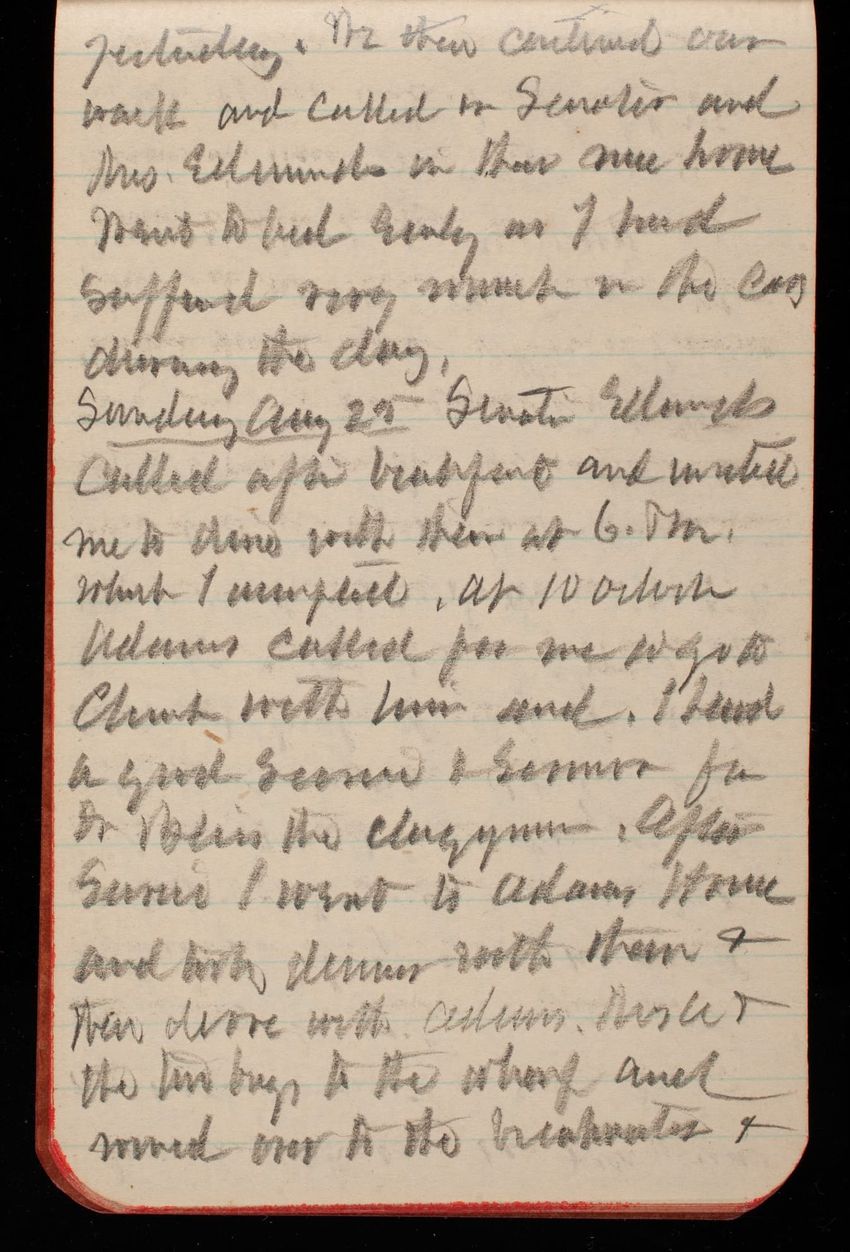 yesterday. We then continued our
walk and called on Senator and
Mrs. Edmunds in their new home
Went to bed Early as I had
suffered very much in the Cars
during the day.
Sunday Aug 25 Senator Edmunds
Called after breakfast and invited
me to dine with them at 6. P.M.
which I accepted. at 10 oclock
Adams called for me to go to
Church with him and. I heard
a good Service & Sermon from
Dr Bliss the clergyman. After
Service I went to Adams Home
and took dinner with them &
then drove with Adams. &
the two boys to the wharf and
rowed over to the breakwater &